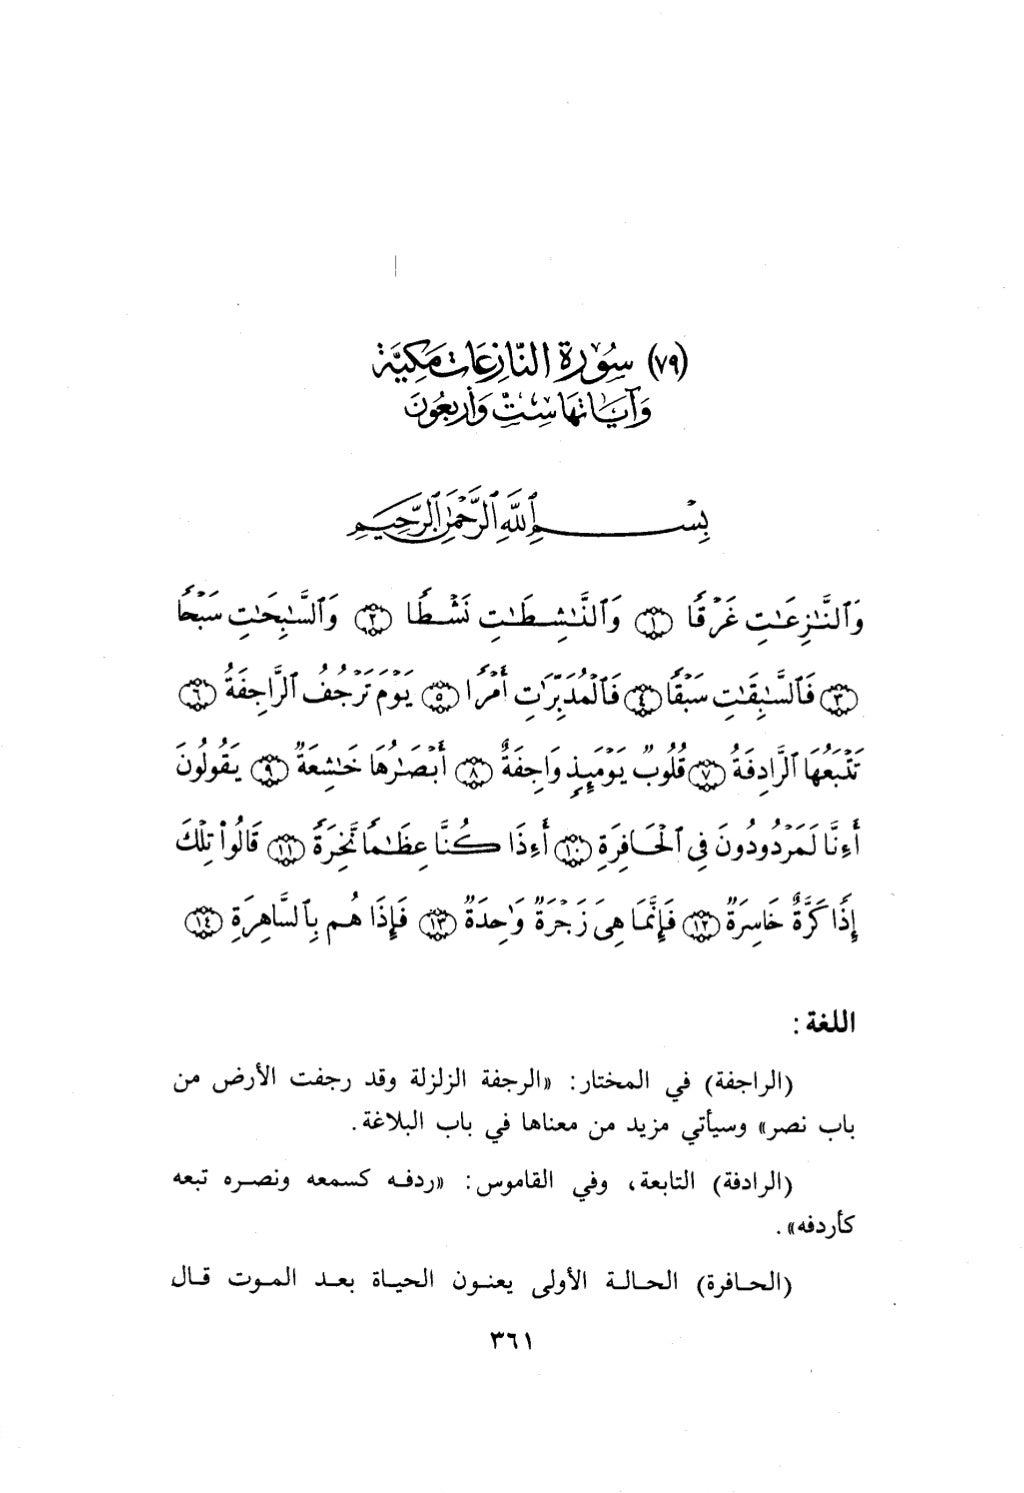 (٧٩) سُورَة النَّازِعَات مَكِيَّة
وَآيَاتُهَا سِتٌّ وَأَرْبَعُونَ
بِسْمِ ٱللَّهِ ٱلرَّحْمَٰنِ ٱلرَّحِيمِ
وَٱلنَّٰزِعَٰتِ غَرْقًا ﴿١﴾ وَٱلنَّٰشِطَٰتِ نَشْطًا ﴿٢﴾ وَٱلسَّٰبِحَٰتِ سَبْحًا
﴿٣﴾ فَٱلسَّٰبِقَٰتِ سَبْقًا ﴿٤﴾ فَٱلْمُدَبِّرَٰتِ أَمْرًا ﴿٥﴾ يَوْمَ تَرْجُفُ ٱلرَّاجِفَةُ ﴿٦﴾
تَتْبَعُهَا ٱلرَّادِفَةُ ﴿٧﴾ قُلُوبٌ يَوْمَئِذٍ وَاجِفَةٌ ﴿٨﴾ أَبْصَٰرُهَا خَٰشِعَةٌ ﴿٩﴾ يَقُولُونَ
أَءِنَّا لَمَرْدُودُونَ فِى ٱلْحَافِرَةِ ﴿١٠﴾ أَءِذَا كُنَّا عِظَٰمًا نَّخِرَةً ﴿١١﴾ قَالُوا۟ تِلْكَ
إِذًا كَرَّةٌ خَاسِرَةٌ ﴿١٢﴾ فَإِنَّمَا هِىَ زَجْرَةٌ وَٰحِدَةٌ ﴿١٣﴾ فَإِذَا هُم بِٱلسَّاهِرَةِ ﴿١٤﴾
اللغة :
(الراجفة) في المختار: «الرجفة الزلزلة وقد رجفت الأرض من
باب نصر» وسيأتي مزيد من معناها في باب البلاغة.
(الرادفة) التابعة، وفي القاموس: «ردفه كسمعه ونصره تبعه
كأردفه».
(الحافرة) الحالة الأولى يعنون الحياة بعد الموت قال
٣٦١